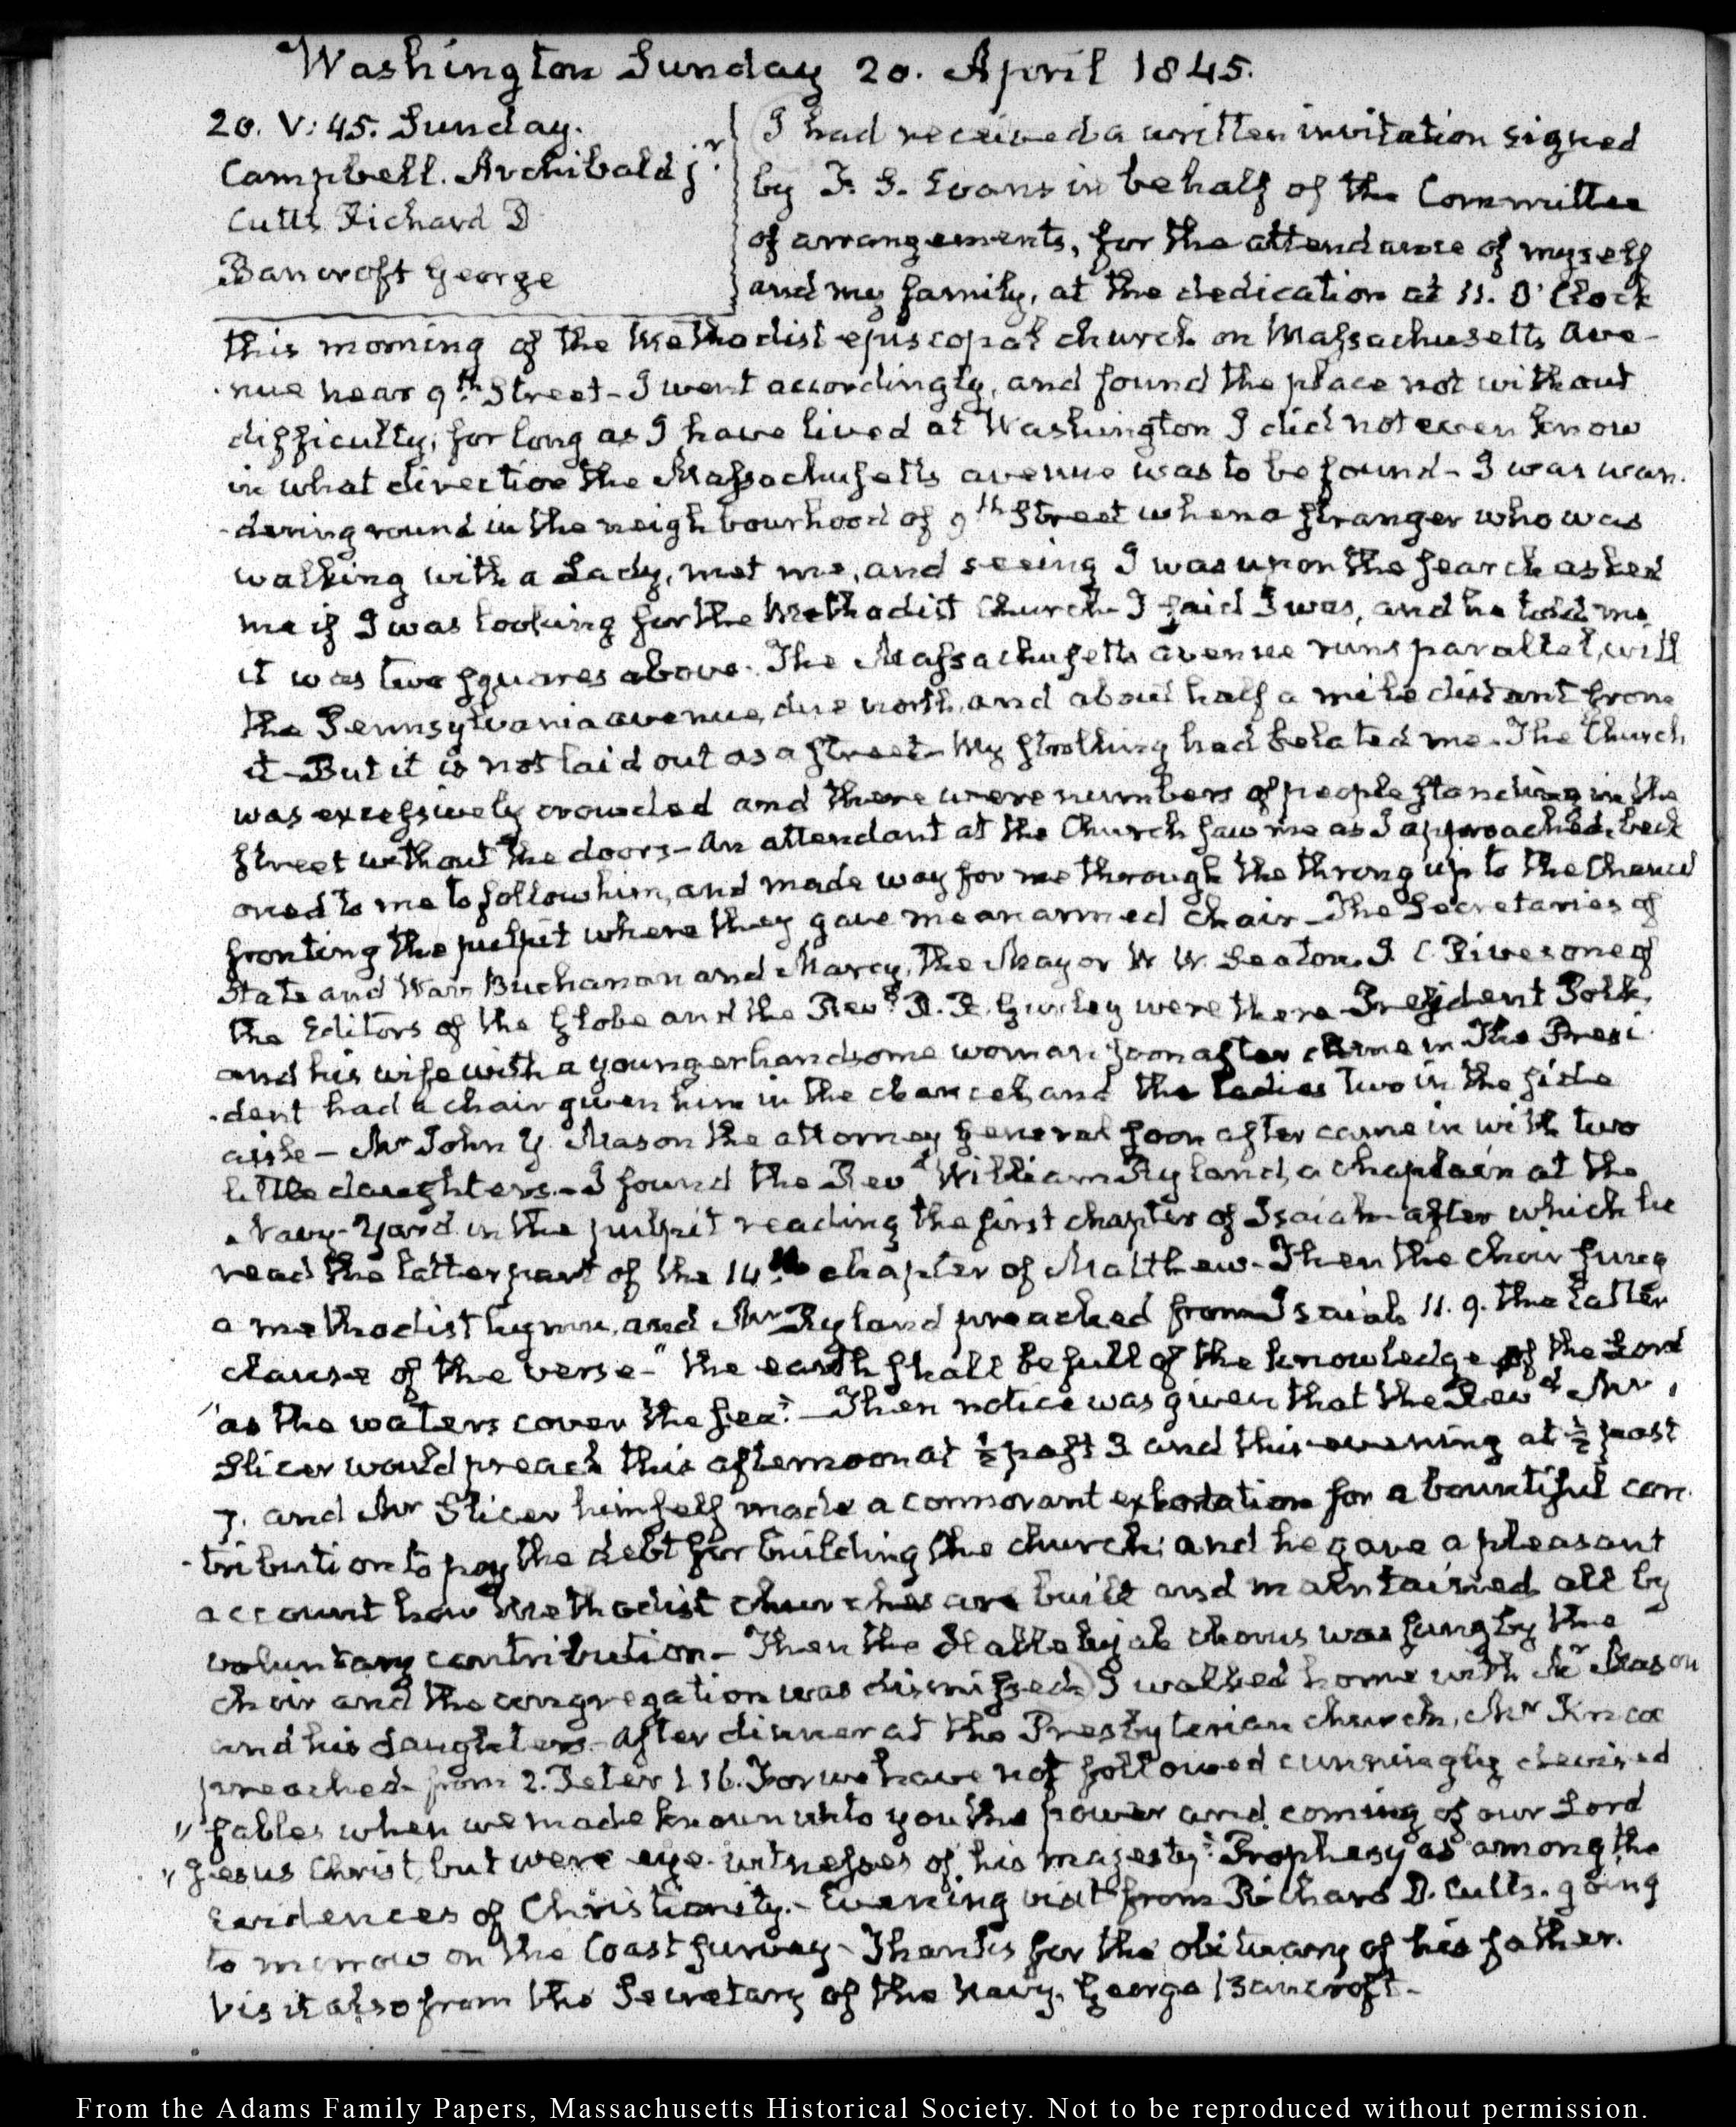 Washington Sunday 20. April 1845.
20. V: 45. Sunday.
Campbell. Archibald jr.
Cutts Richard D
Bancroft George
I had received a written invitation signed
by F. S. Evans in behalf of the Committee
of arrangements, for the attendance of myself
and my family, at the dedication at 11. O'Clock
this morning of the Methodist episcopal church on Massachusetts Ave-
nue near 9th Street - I went accordingly, and found the place not without
difficulty, for long as I have lived at Washington I did not even know
in what direction the Massachusetts avenue was to be found - I was wan-
-dering round in the neighbourhood of 9th Street when a stranger who was
walking with a Lady, met me, and seeing I was upon the search asked
me if I was looking for the Methodist Church - I said I was, and he told me
it was two squares above. The Massachusetts avenue runs parallel, with
the Pennsylvania avenue, due north, and about half a mile distant from
it - But it is not laid out as a street - My strolling had belated me - The Church
was excessively crowded and there were numbers of people standing in the
street without the doors - An attendant at the Church saw me as I approached, beck
oned to me to follow him, and made way for me through the throng up to the Chancel
fronting the pulpit where they gave me an armed chair - The Secretaries of
State and War, Buchanan and Marcy, the Mayor W. W. Seaton. J. C Rives one of
the Editors of the Globe and the Revd. R. R. Gurley were there President Polk,
and his wife with a younger handsome woman soon after came in The Presi
-dent had a chair given him in the chancel, and the ladies two in the side
aisle - Mr John Y. Mason the attorney General soon after came in with two
little daughters. - I found the Revd William Ryland, a chaplain at the
Navy-Yard in the pulpit reading the first chapter of Isaiah - after which he
read the latter part of the 14th. chapter of Matthew - Then the choir sung
a methodist hymn, and Mr Ryland preached from Isaiah 11. 9. the latter
clause of the verse - "the earth shall be full of the knowledge of the Lord
"as the waters cover the sea". - Then notice was given that the Revd Mr
Slicer would preach this afternoon at ½ past 3 and this evening at ½ past
7. and Mr Slicer himself made a cormorant exhortation for a bountiful con-
-tribution to pay the debt for building the church; and he gave a pleasant
account how Methodist churches are built and maintained all by
voluntary contribution - Then the Hallelujah chorus was sung by the
choir and the congregation was dismissed) I walked home with Mr Mason
and his daughters - After dinner at the Presbyterian church, Mr Knox
preached from 2. Peter 1 16. For we have not followed cunningly devised
"fables when we made known unto you the power and coming of our Lord
"Jesus Christ, but were eye-witnesses of his majesty." Prophesy as among the
evidences of Christianity. - Evening visit from Richard D. Cutts. going
to morrow on the Coast survey - Thanks for the obituary of his father.
Visit also from the Secretary of the Navy, George Bancroft -
From the Adams Family Papers, Massachusetts Historical Society. Not to be reproduced without permission.